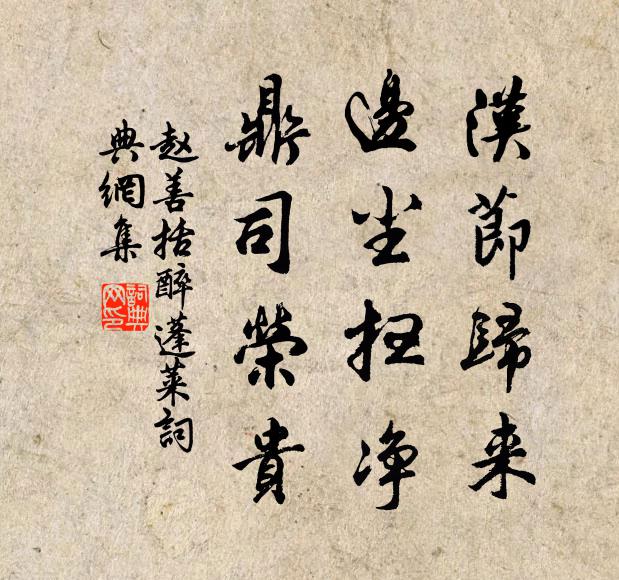 漢節歸来
邊尘扫净
鼎司榮貴
赵善括醉蓬莱詞
典網集
詞典网印